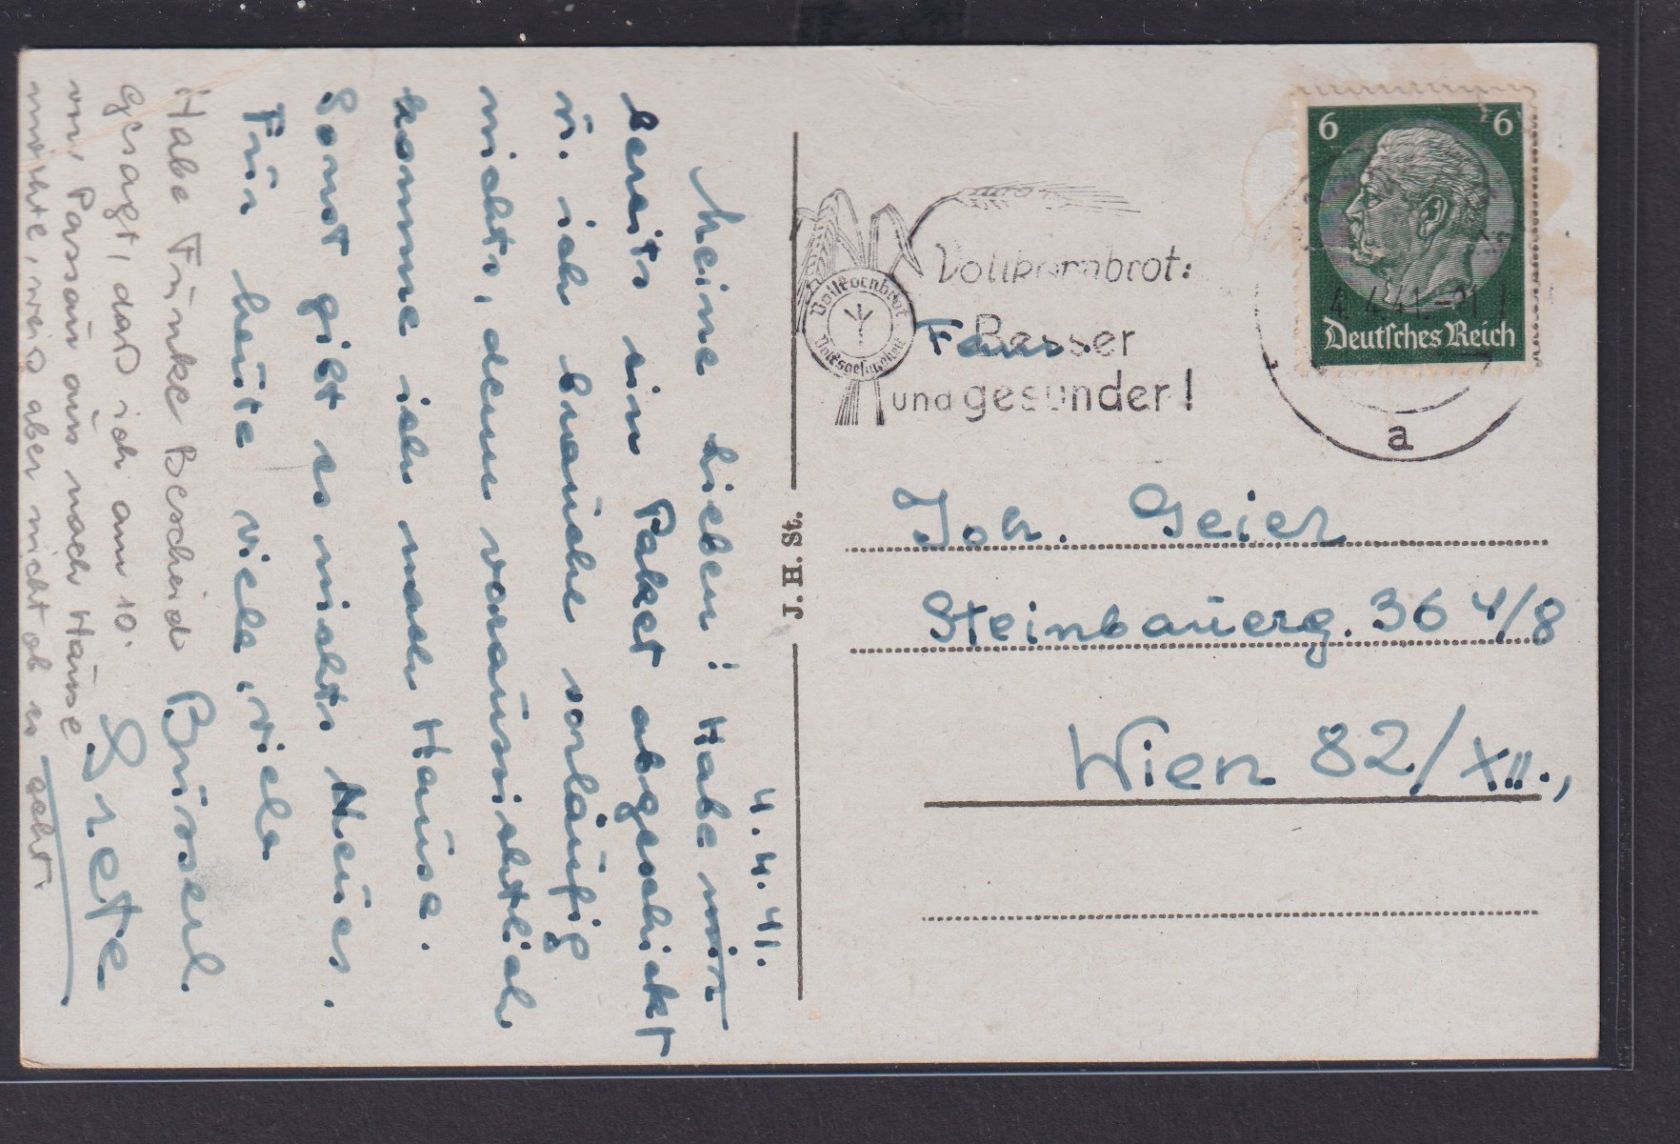 4.4.41.
Meine Lieben! Habe mir
bereits ein Paket abgeschickt
ü. ich braüche vorläüfig
nichts, denn voraüssichtlich
komme ich nach Haüse.
Sonst gibt es nichts Neües.
Für heüte viele, viele
Büsserl.
Grete
Habe Funke Bescheid
gesagt, daß ich am 10.
von Passaü aüs nach Haüse
möchte, weiß aber nicht ob es geht.
J. H. St.
6 6
Deutsches Reich
4.4.41.-21
a
Vollkornbrot
Volksgesundheit
Vollkornbrot:
Besser
und gesünder!
Fam.
Joh. Geier
Steinbaüerg. 36 4/8
Wien 82/XII.,